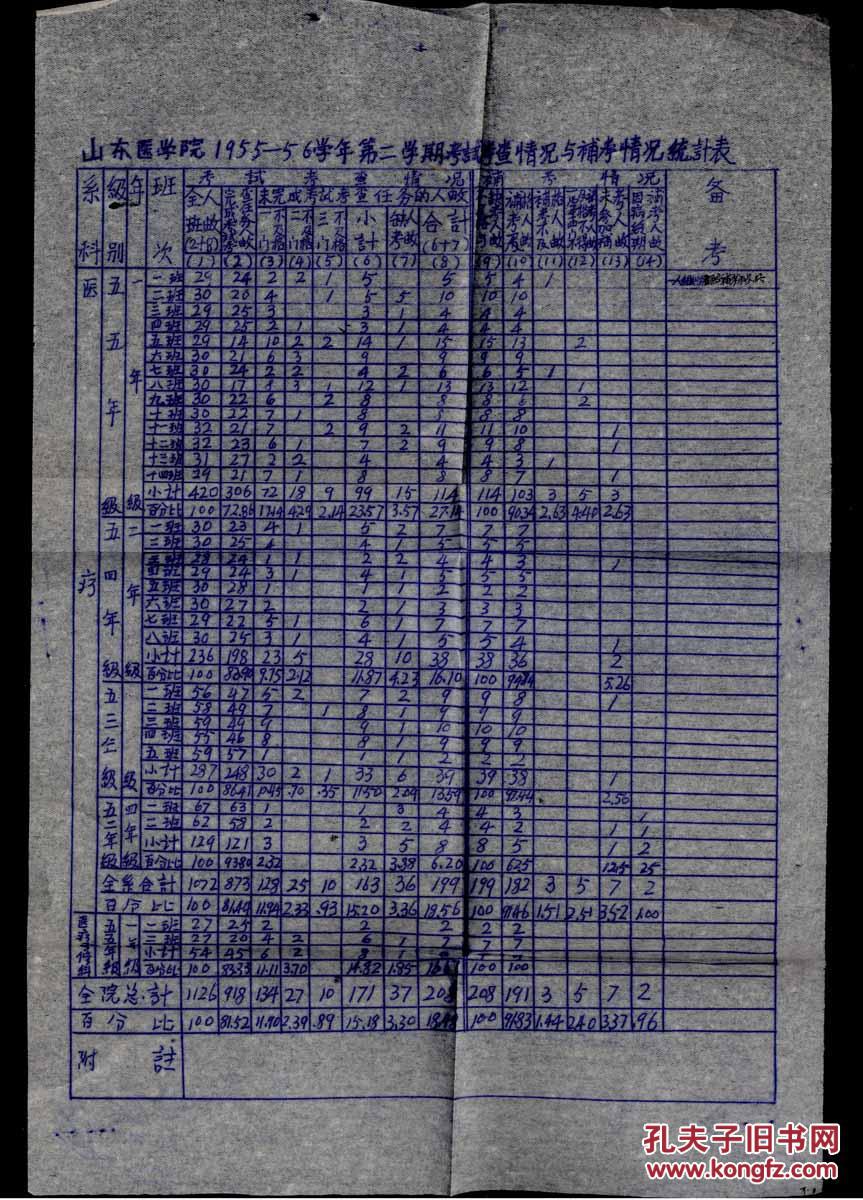 山东医学院1955—56学年第二学期考试考查情况与補考情况統計表
系科 級别 年 班次 考試考查情况 補考情况 备考
未完成考試考查任务的人数
全班人数 (2+8) 一门不及格 二门不及格 三门不及格 小計 缺考人数 合計 (6+7)
(1) (2) (3) (4) (5) (6) (7) (8) (9) (10) (11) (12) (13) (14)
医疗 五五年級 一年級 一班 29 24 2 2 1 5 5 5 4 1
二班 30 20 4 1 5 5 10 10 10
三班 29 25 3 3 1 4 4 4
四班 29 25 2 1 3 1 4 4 4
五班 29 14 10 2 2 14 1 15 15 13 2
六班 30 21 6 3 9 9 9 9
七班 30 24 2 2 4 2 6 6 5 1
八班 30 17 8 3 1 12 1 13 13 12 1
九班 30 22 6 2 8 8 8 6 2
十班 30 22 7 1 8 8 8 8
十一班 32 21 7 2 9 2 11 11 10 1
十二班 32 23 6 1 7 2 9 9 8 1
十三班 31 27 2 2 4 4 4 3 1
十四班 29 21 7 1 8 8 8 7 1
小计 420 306 72 18 9 99 15 114 114 103 3 5 3
百分比 100 72.86 17.14 4.29 2.14 23.57 3.57 27.14 100 90.34 2.63 4.40 2.63
五四年級 二年級 一班 30 23 4 1 5 2 7 7 7
三班 30 25 4 4 1 5 5 5
28 24 1 1 2 2 4 4 3 1
四班 29 24 3 1 4 1 5 5 5
五班 30 28 1 1 1 2 2 2
六班 30 27 2 2 1 3 3 3
七班 29 22 5 1 6 1 7 7 7
八班 30 25 3 1 4 1 5 5 4 1
小计 236 198 23 5 28 10 38 38 36 2
百分比 100 83.90 9.75 2.12 11.87 4.23 16.10 100 94.74 5.26
五三年級 級 一班 56 47 5 2 7 2 9 9 8 1
二班 58 49 7 1 8 1 9 9 9
三班 59 49 9 9 1 10 10 10
四班 55 46 8 8 1 9 9 9
五班 59 57 1 1 1 2 2 2
小计 287 248 30 2 1 33 6 39 39 38 1
百分比 100 86.41 10.45 .70 .35 11.50 2.09 13.59 100 97.44 2.56
五二年級 四年級 一班 67 63 1 1 3 4 4 3 1
二班 62 58 2 2 2 4 4 2 1 1
小计 129 121 3 3 5 8 8 5 1 2
百分比 100 93.80 2.32 2.32 3.88 6.20 100 62.5 12.5 25
全系合計 1072 873 128 25 10 163 36 199 199 182 3 5 7 2
百分比 100 81.44 11.94 2.33 .93 15.20 3.36 18.56 100 91.46 1.51 2.51 3.52 1.00
医疗专修科 五五年級 一年級 一班 27 25 2 2 2 2 2
三班 27 20 4 2 6 1 7 7 7
小计 54 45 6 2 8 1
百分比 100 83.33 11.11 3.70 14.82 1.85 100 100
全院总計 1126 918 134 27 10 171 37 208 208 191 3 5 7 2
百分比 100 81.52 11.90 2.39 .89 15.18 3.30 18.48 100 91.83 1.44 2.40 3.37 .96
附註
孔夫子旧书网
www.kongfz.com